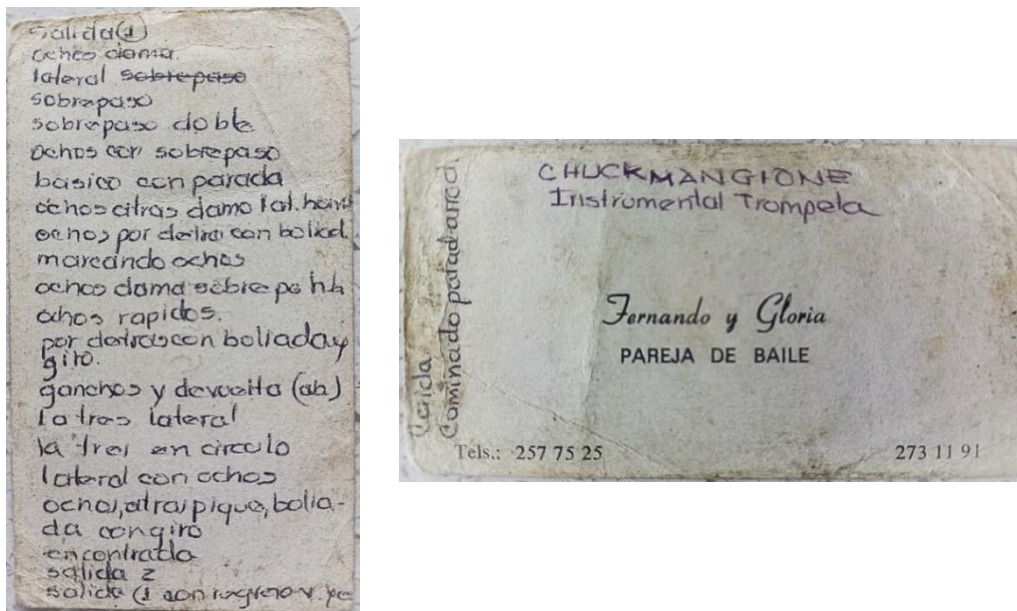 salida (1)
ochos dama.
lateral sobrepaso
sobrepaso
sobrepaso doble
ochos con sobrepaso
basico con parada
ochos atras dama lat.
ochos por detras con
marcando ochos
ochos dama sobre
ochos rapidos.
por detras con boliada y
giro.
ganchos y devuelta
la tres lateral
la tres en circulo
lateral con ochos
ochos, atras pique, bolia-
da con giro
encontrada
salida 2
salida (1 con regreso y
CHUCK MANGIONE
Instrumental Trompeta
Fernando y Gloria
PAREJA DE BAILE
Tels.: 257 75 25
273 11 91
Caminado